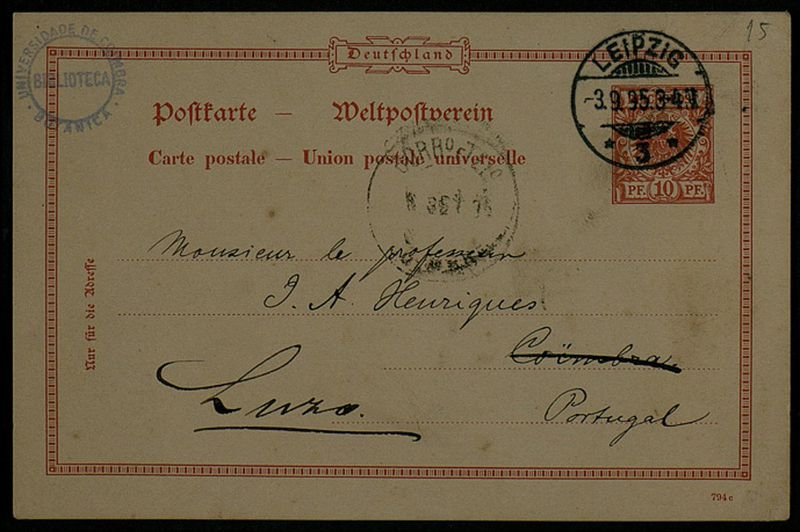 15
UNIVERSIDADE DE COIMBRA
BIBLIOTECA
BOTANICA
Deutschland
LEIPZIG
-3.9.95.3-4.N.
* 3 *
Postkarte — Weltpostverein
Carte postale — Union postale universelle
PF. 10 PF.
Nur für die Adresse
Monsieur le professeur
J. A. Henriques
Coïmbra.
Luzo.
Portugal
794c